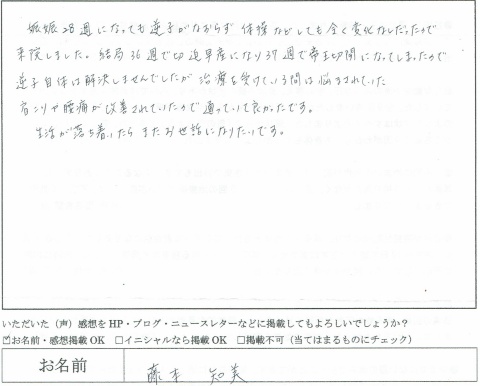 妊娠28週になっても逆子がなおらず 体操などしても全く変化なしだったので
来院しました。結局36週で切迫早産になり37週で帝王切開になってしまったので
逆子自体は解決しませんでしたが 治療を受けている間は悩まされていた
肩こりや腰痛が改善されていたので通っていて良かったです。
生活が落ち着いたら またお世話になりたいです。
いただいた（声）感想をHP・ブログ・ニュースレターなどに掲載してもよろしいでしょうか？
☑お名前・感想掲載OK □イニシャルなら掲載OK □掲載不可（当てはまるものにチェック）
お名前 藤本 知美